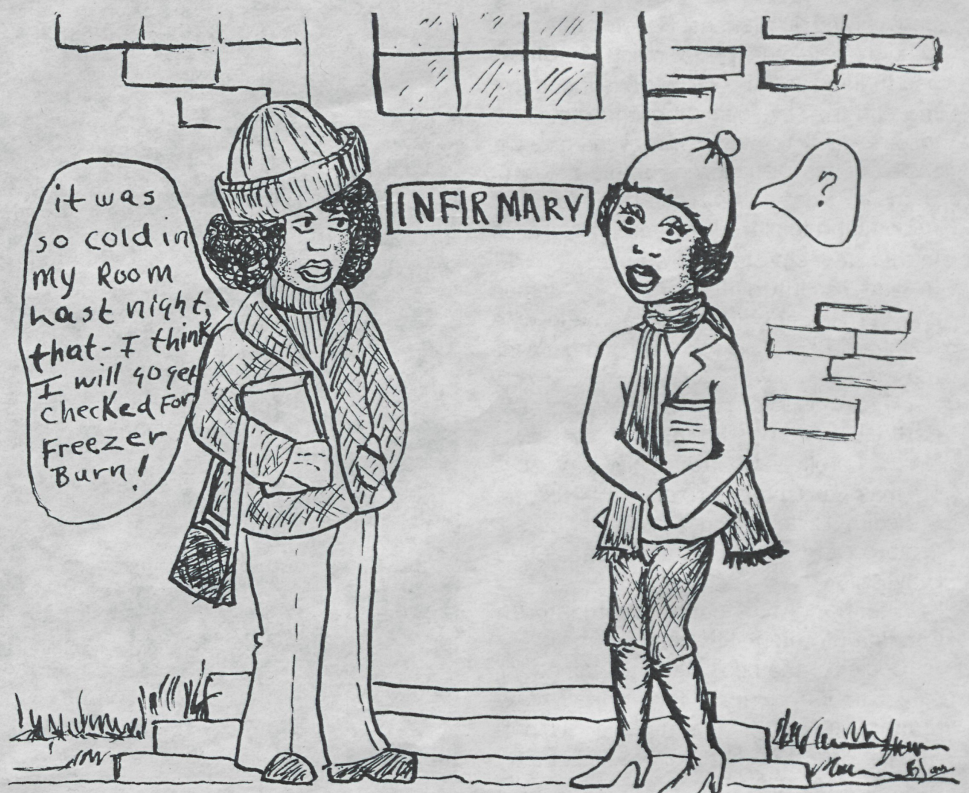 it was
so cold in
my Room
hast night,
that - I think
I will go get
checked For
Freezer
Burn!
INFIRMARY
?